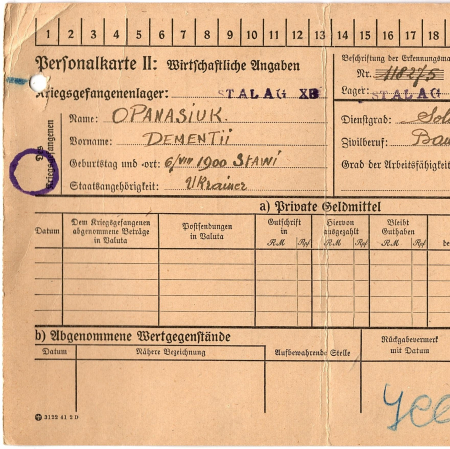 1 2 3 4 5 6 7 8 9 10 11 12 13 14 15 16 17 18
Personalkarte II: Wirtschaftliche Angaben
Beschriftung der Erkennungsma
Nr. 118275
Kriegsgefangenenlager: STALAG XB
Lager: STALAG
Des Kriegsgefangenen
Name: OPANASIUK.
Dienstgrad: Sol
Vorname: DEMENTII
Zivilberuf: Bau
Geburtstag und -ort: 6/VIII 1900 Stawi
Grad der Arbeitsfähigkeit
Staatsangehörigkeit: Ukrainer
a) Private Geldmittel
Datum
Dem Kriegsgefangenen abgenommene Beträge in Valuta
Postsendungen in Valuta
Gutschrift in
RM Rpf
Hiervon ausgezahlt
RM Rpf
Bleibt Guthaben
RM Rpf
de
b) Abgenommene Wertgegenstände
Datum
Nähere Bezeichnung
Aufbewahrende Stelle
Rückgabevermerk mit Datum
3122 41 2 D